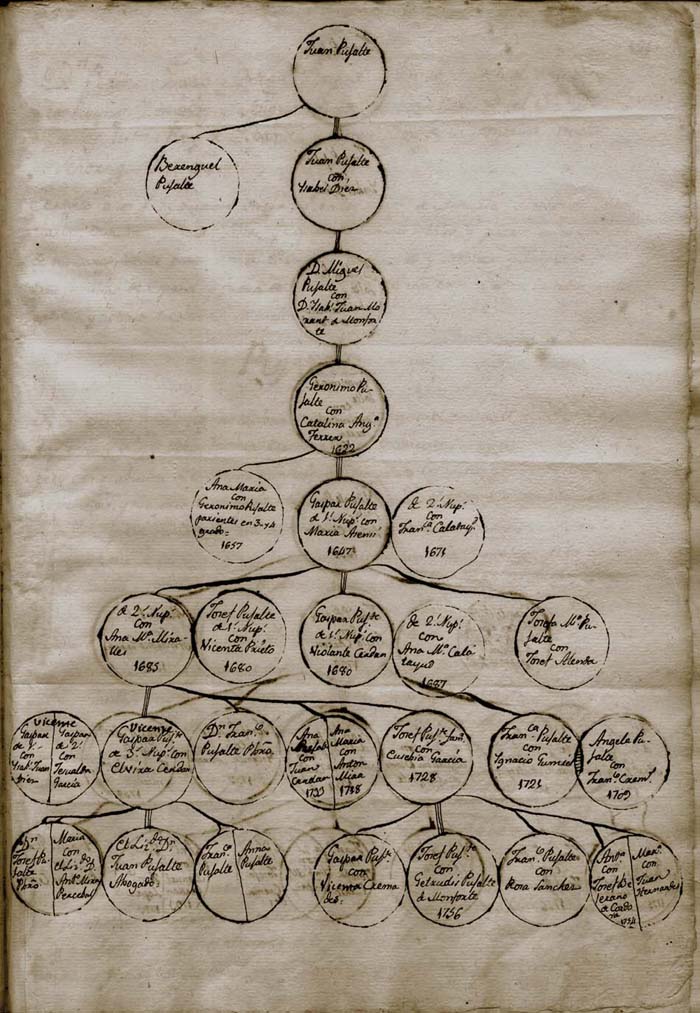 Juan Pujalte
Berenguel
Pujalte
Juan Pujalte
con
Ysabel Diez
D. Miguel
Pujalte
con
D.ª Ysab.l Juan Mo
de Monfor
te
Geronimo Pu-
jalte
con
Catalina Ang.ª
Ferrer
1622
Ana Maria
con
Geronimo Pujalte
parientes en 3. y 4
grado=
1657
Gaspar Pujalte
de 1.ª Nup.s con
Maria
1647
de 2.ª Nup.s
con
Fran.ca Calatay.d
1671
de 2.ª Nup.s
con
Ana M.ª Mira-
lles
1685
Josef Pujalte
de 1.ª Nup.s
con
Vicenta Prieto
1680
Gaspar Puj.te
de 1.ª Nup.s con
Violante Cerdan
1680
de 2.ª Nup.s
con
Ana M.ª Cala
tayud
1687
Josefa M.ª Pu-
jalte
con
Josef Alenda
Vicente
Gaspar
de 1.ª
con
Ysab.l Juan
Diez
Gaspar
de 2.ª
con
Garcia
Vicente
Gaspar Puj.te
de 3.ª Nup.s con
Elvira Cerdan
D.r Fran.co
Pujalte Pbro.
Ana
con
Juan
Cerdan
1733
Ana
Maria
con
Anton
Mira
1738
Josef Puj.te
con
Eusebia Garcia
1728
Fran.ca Pujalte
con
Ignacio Gumiel
1721
Angela Pu-
jalte
con
Fran.co
1709
D.n
Josef Pu-
jalte
Pbro.
Maria
con
el L.do D.
Ant.º Mira
Perceval
El L.do D.r
Juan Pujalte
Abogado=
Fran.co
Pujalte
Anna
Pujalte
Gaspar Puj.te
con
Vicenta Crema
des=
Josef Puj.te
con
Getrudis Pujalte
de Monforte
1756
Fran.co Pujalte
con
Rosa Sanchez
Ant.ª
con
Josef Be
de
1754
Mar.ª
con
Juan
Hernandes